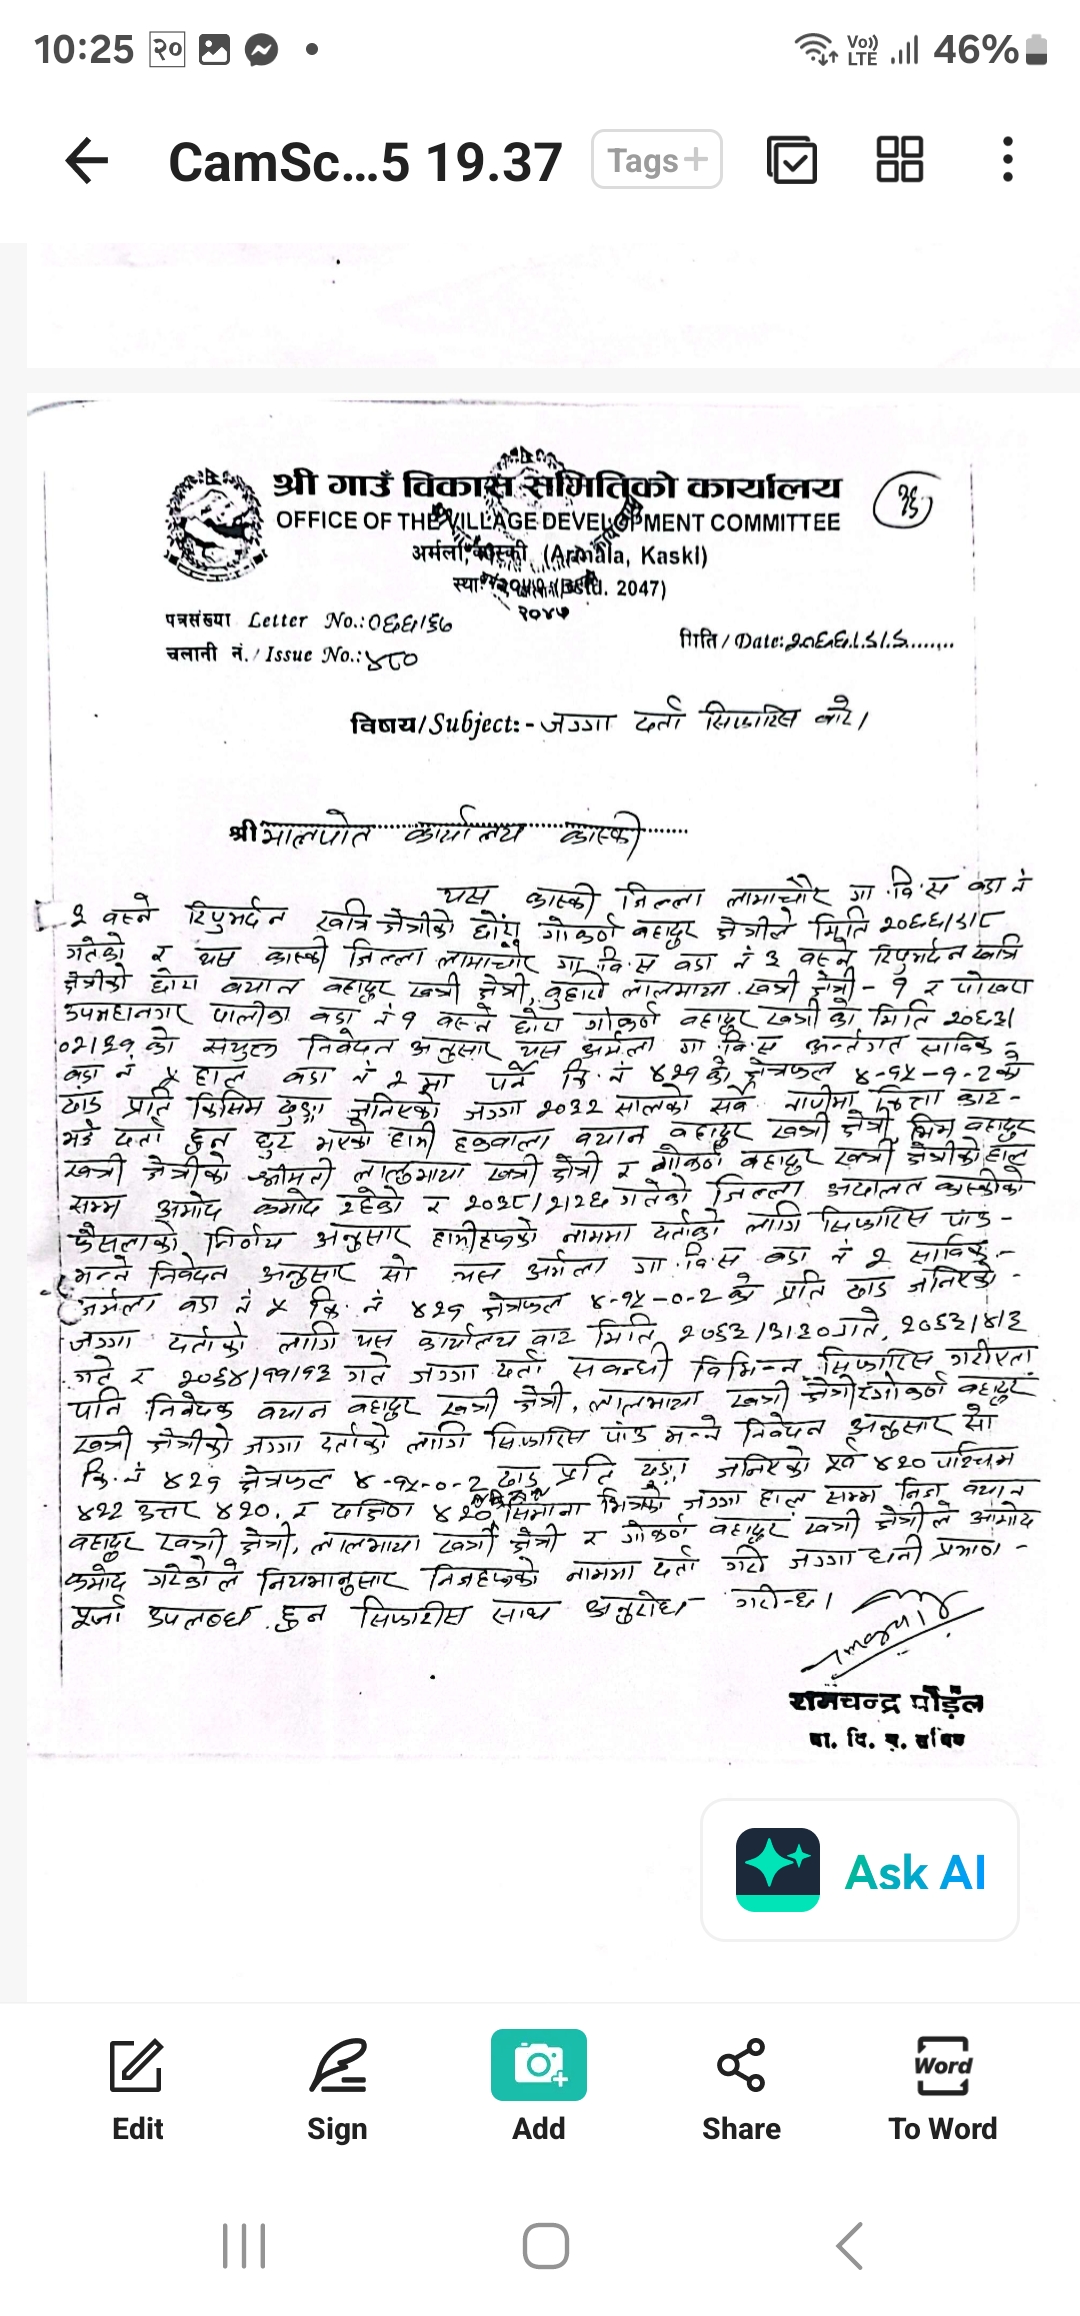 10:25 २०
Vo))
LTE 46%
CamSc...5 19.37 Tags+
श्री गाउँ विकास समितिको कार्यालय
OFFICE OF THE VILLAGE DEVELOPMENT COMMITTEE
अर्मला, कास्की (Armala, Kaski)
स्था. २०४७ (Estd. 2047)
२०४७
पत्रसंख्या Letter No.:०६६/६७
मिति / Date:२०६६।८।८
चलानी नं. / Issue No.:४८०
विषय/Subject:- जग्गा दर्ता सिफारिस बारे।
श्री मालपोत कार्यालय कास्की
यस कास्की जिल्ला लामाचौर गा.वि.स वडा नं
३ बस्ने रिपुमर्दन खत्रि क्षेत्रीको छोरा गोकर्ण बहादुर क्षेत्रीले मिति
गतेको र यस कास्की जिल्ला लामाचौर गा.वि.स वडा नं ३ बस्ने रिपुमर्दन खत्रि
क्षेत्रीको छोरा बयान बहादुर खत्री क्षेत्री, बुहारी लालमाया खत्री क्षेत्री - १ र पोखरा
उपमहानगर पालीका वडा नं १ बस्ने छोरा गोकर्ण बहादुर खत्री को मिति
को संयुक्त निवेदन अनुसार यस अर्मला गा.वि.स अन्तर्गत साविक
वडा नं ५ हाल वडा नं २ मा पर्ने कि.नं ४२१ को क्षेत्रफल ४-१५-१-२ को
प्रति किसिम जनिएको जग्गा २०३२ सालको सर्वे नापीमा कित्ता काट-
भई दर्ता हुन छुट भएको हामी हकवाला बयान बहादुर खत्री क्षेत्री, भिम बहादुर
खत्री क्षेत्रीको श्रीमती लालमाया खत्री क्षेत्री र गोकर्ण बहादुर खत्री क्षेत्रीको हाल
सम्म कमोद रहेको र गतेको जिल्ला अदालत कास्कीको
फैसलाको निर्णय अनुसार हामीहरुको नाममा दर्ताको लागि सिफारिस पाउ-
भन्ने निवेदन अनुसार सो यस अर्मला गा.वि.स वडा नं २ साविक-
अर्मला वडा नं ५ कि.नं ४२१ क्षेत्रफल ४-१५-०-२ को प्रति जनिएको-
जग्गा दर्ताको लागि यस कार्यालय बाट मिति २०६२/३/२० गते, २०६२/४/३
गते र २०६४/११/१३ गते जग्गा दर्ता सवन्धी विभिन्न सिफारिस गरीएता
पनि निवेदक बयान बहादुर खत्री क्षेत्री, लालमाया खत्री क्षेत्री र गोकर्ण बहादुर
खत्री क्षेत्रीको जग्गा दर्ताको लागि सिफारिस पाउ भन्ने निवेदन अनुसार सो
कि.नं ४२१ क्षेत्रफल ४-१५-०-२ प्रति जनिएको पूर्व ४२० पश्चिम
४२२ उत्तर ४२०, र दक्षिण ४२० सिमाना भित्रको जग्गा हाल सम्म निज बयान
बहादुर खत्री क्षेत्री, लालमाया खत्री क्षेत्री र गोकर्ण बहादुर खत्री क्षेत्रीले
कमोद गरेकोले नियमानुसार निजहरुको नाममा दर्ता गरी जग्गा धनी प्रमाण-
पूर्जा उपलब्ध हुन सिफारीस साथ अनुरोध गरीन्छ।
रामचन्द्र पौडेल
Ask AI
Edit Sign Add Share Word
To Word